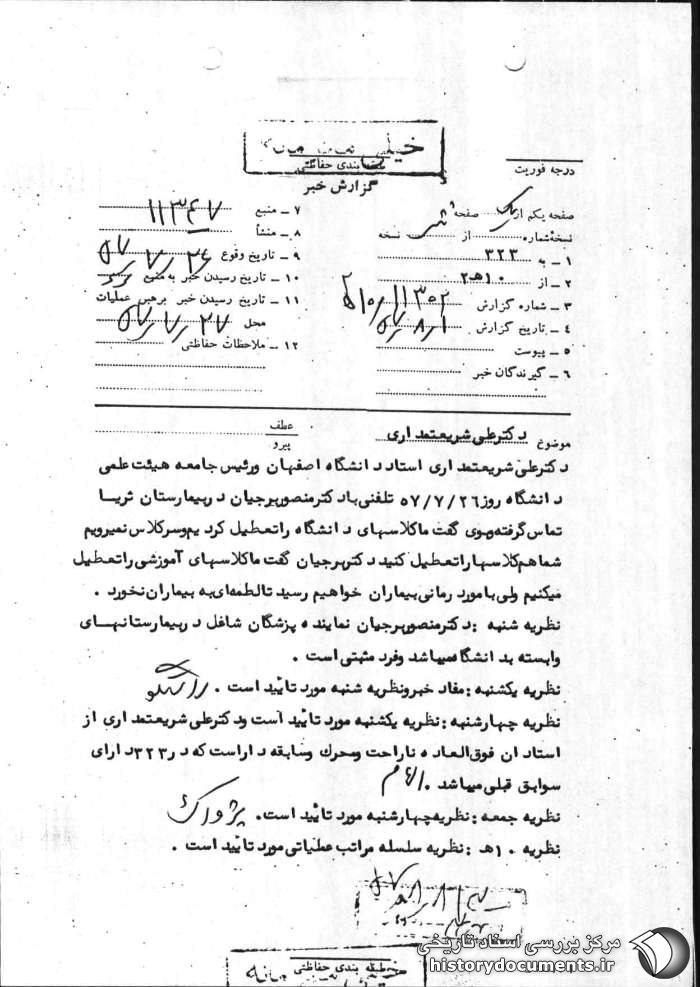 خیلی محرمانه
طبقه بندی حفاظتی
گزارش خبر
درجه فوریت
صفحه یکم از یک صفحه
نسخه شماره از نسخه
۱ ــ به ۳۲۳
۲ ــ از ۱۰هـ۲
۳ ــ شماره گزارش ۱۱۳۰۲/۱۰هـ۲
۴ ــ تاریخ گزارش ۵۷/۸/۱
۵ ــ پیوست
۶ ــ گیرندگان خبر
۷ ــ منبع ۱۱۳۴۷
۸ ــ منشأ
۹ ــ تاریخ وقوع ۵۷/۷/۲۶
۱۰ ــ تاریخ رسیدن خبر به منبع
۱۱ ــ تاریخ رسیدن خبر برهبر عملیات
محل ۵۷/۷/۲۷
۱۲ ــ ملاحظات حفاظتی
موضوع دکترعلی شریعتمداری
عطف
پیرو
دکترعلی شریعتمداری استاد دانشگاه اصفهان ورئیس جامعه هیئت علمی
دانشگاه روز ۵۷/۷/۲۶ تلفنی بادکترمنصوربرجیان دربیمارستان ثریا
تماس گرفته وبوی گفت ماکلاسهای دانشگاه راتعطیل کردیم وسرکلاس نمیرویم
شماهم کلاسهاراتعطیل کنید دکتربرجیان گفت ماکلاسهای آموزشی راتعطیل
میکنیم ولی بامورد رمانی بیماران خواهیم رسید تالطمه‌ای به بیماران نخورد .
نظریه شنبه : دکترمنصوربرجیان نماینده پزشگان شاغل دربیمارستانهای
وابسته بدانشگاه میباشد وفرد مثبتی است .
نظریه یکشنبه : مفاد خبرونظریه شنبه مورد تائید است .
نظریه چهارشنبه : نظریه یکشنبه مورد تائید است ودکترعلی شریعتمداری از
استادان فوق‌العاده ناراحت ومحرک وسابقه داراست که در۳۲۳دارای
سوابق قبلی میباشد .
نظریه جمعه : نظریه چهارشنبه مورد تائید است . پژواک
نظریه ۱۰هـ : نظریه سلسله مراتب عملیاتی مورد تائید است .
طبقه بندی حفاظتی
خیلی محرمانه
مرکز بررسی اسناد تاریخی
historydocuments.ir